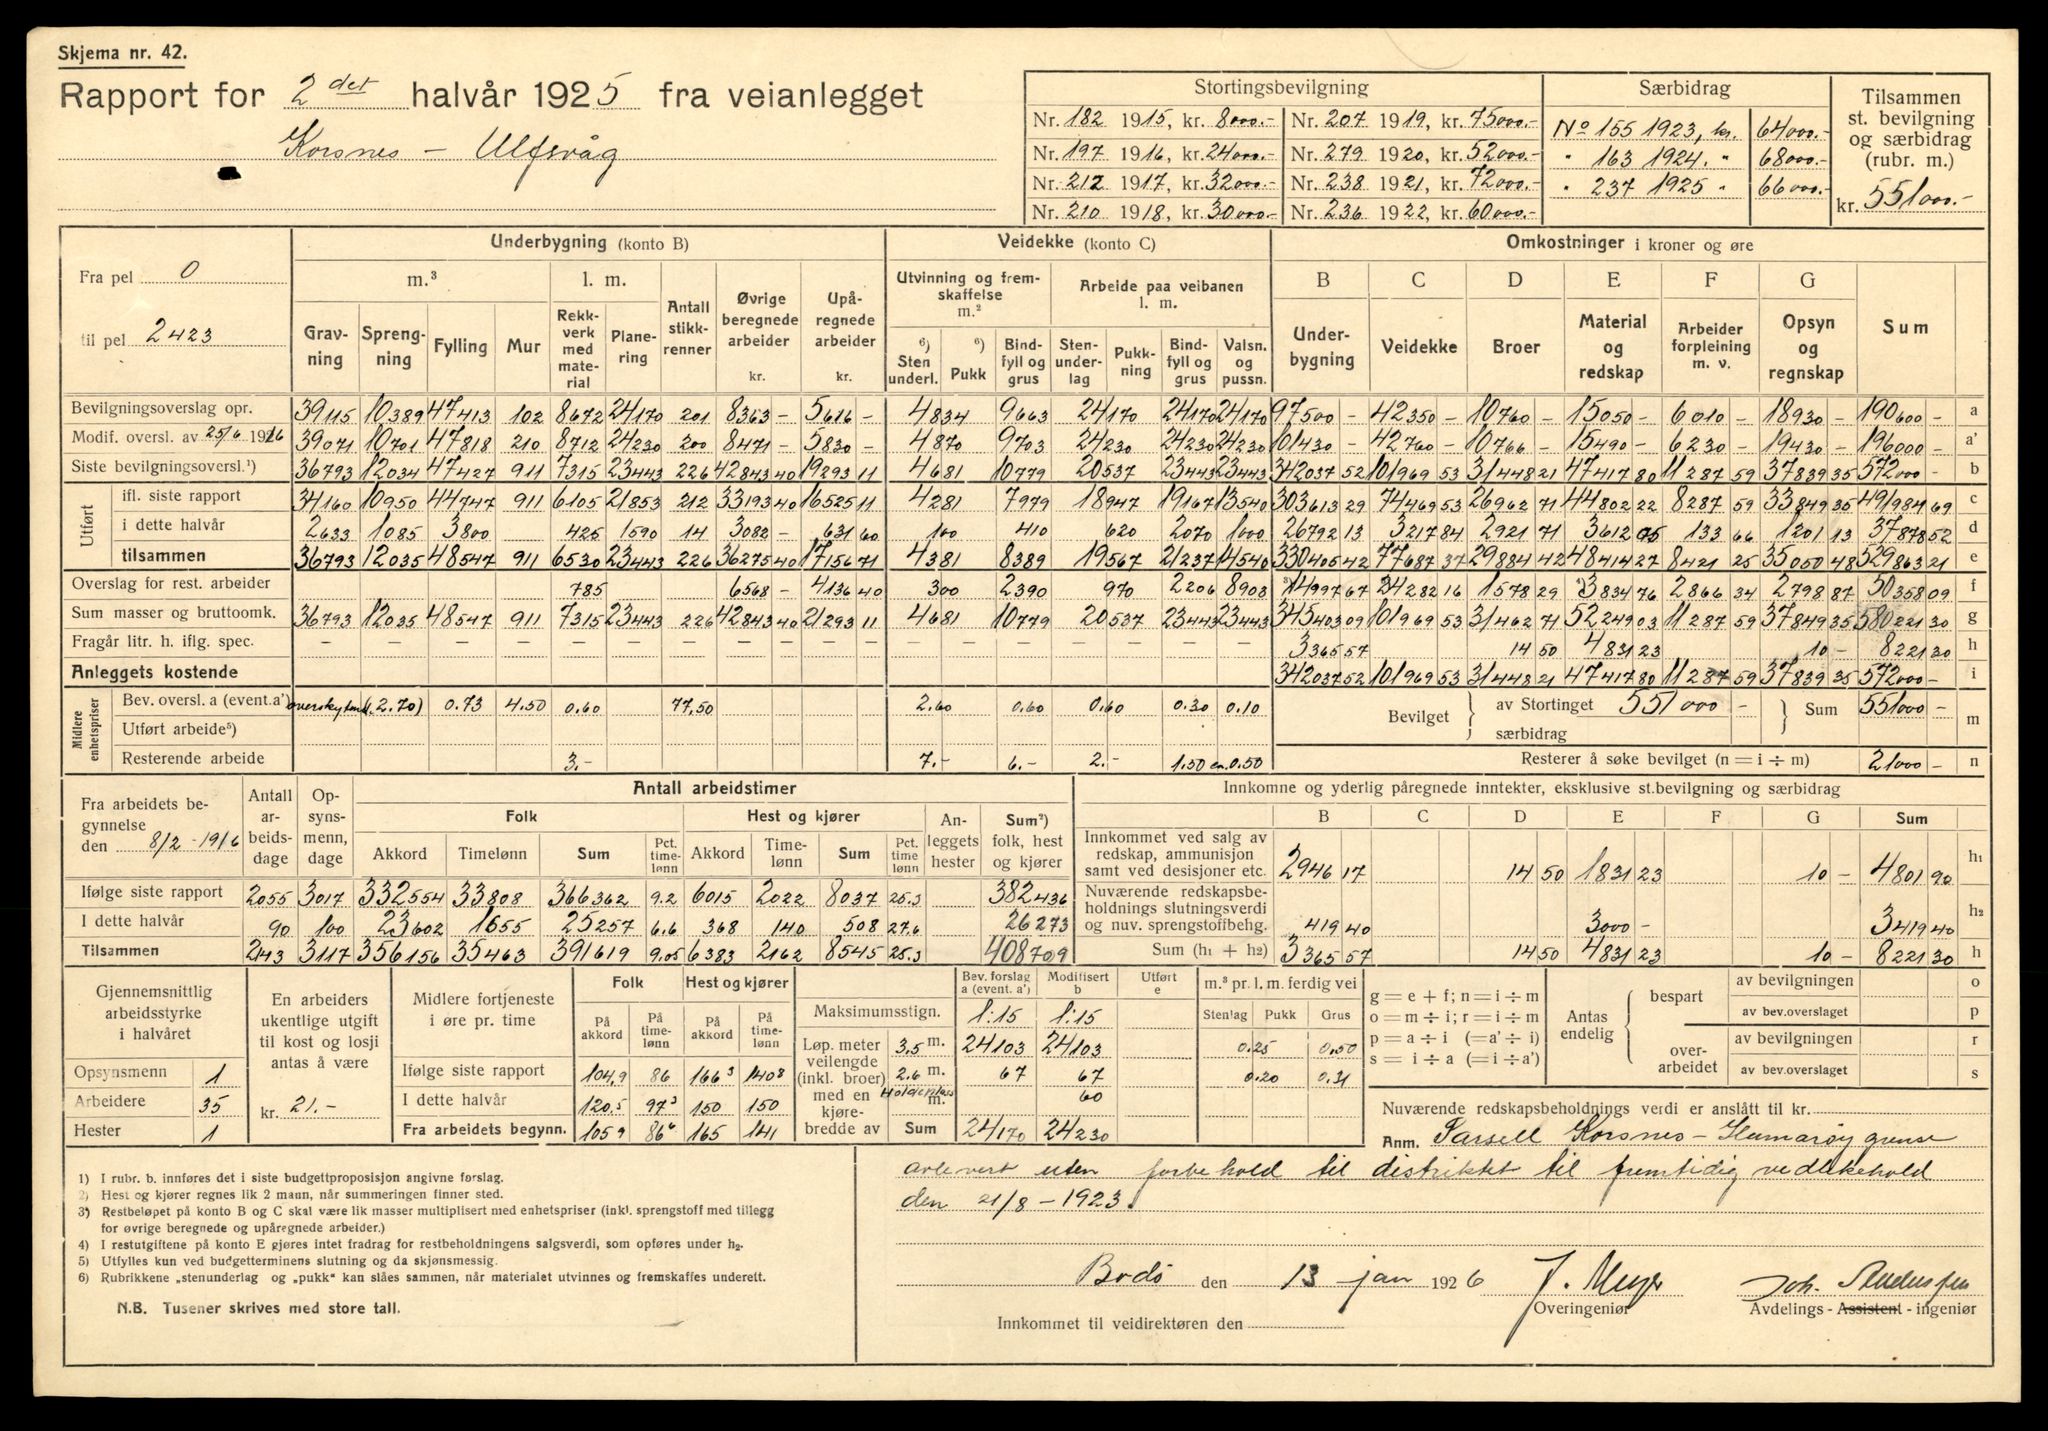 Skjema nr. 42.
Rapport for 2det halvår 1925 fra veianlegget
Korsnes - Ulfsvåg
Stortingsbevilgning | Særbidrag | Tilsammen st. bevilgning og særbidrag (rubr. m.)
Nr. 182 1915, kr. 8000.- | Nr. 207 1919, kr. 75000.- | No 155 1923, kr. 64000.-
Nr. 197 1916, kr. 24000.- | Nr. 279 1920, kr. 52000.- | " 163 1924. " 68000.-
Nr. 212 1917, kr. 32000.- | Nr. 238 1921, kr. 72000.- | " 237 1925 " 66000.-
Nr. 210 1918, kr. 30000.- | Nr. 236 1922, kr. 60000.- | kr. 551000.-
Fra pel 0
til pel 2423
Underbygning (konto B) | Veidekke (konto C) | Omkostninger i kroner og øre
m.³ | l. m. | Antall stikkrenner | Øvrige beregnede arbeider kr. | Upåregnede arbeider kr. | Utvinning og fremskaffelse m.² | Arbeide paa veibanen l. m. | B | C | D | E | F | G | Sum
Gravning | Sprengning | Fylling | Mur | Rekkverk med material | Planering | 6) Sten underl. | 6) Pukk | Bindfyll og grus | Stenunderlag | Pukkning | Bindfyll og grus | Valsn. og pussn. | Underbygning | Veidekke | Broer | Material og redskap | Arbeider forpleining m. v. | Opsyn og regnskap
Bevilgningsoverslag opr. 39115 10389 47413 102 8672 24170 201 8363 - 5616 - 4834 9663 24170 24170 24170 97500 - 42350 - 10760 - 15050 - 6010 - 18930 - 190600 - a
Modif. oversl. av 25/6 1916 39071 10701 47818 210 8712 24230 200 8471 - 5830 - 4870 9703 24230 24230 24230 101430 - 42760 - 10766 - 15490 - 6230 - 19430 - 196000 - a'
Siste bevilgningsoversl.¹) 36793 12034 47427 911 7315 23443 226 42843 40 19293 11 4681 10779 20537 23443 23443 342037 52 101969 53 31448 21 47417 80 11287 59 37839 35 572000 - b
Utført
ifl. siste rapport 34160 10950 44747 911 6105 21853 212 33193 40 16525 11 4281 7979 18947 19167 13540 303613 29 74469 53 26962 71 44802 22 8287 59 33849 35 491984 69 c
i dette halvår 2633 1085 3800 425 1590 14 3082 - 631 60 100 410 620 2070 1000 26792 13 3217 84 2921 71 3612 05 133 66 1201 13 37878 52 d
tilsammen 36793 12035 48547 911 6530 23443 226 36275 40 17156 71 4381 8389 19567 21237 14540 330405 42 77687 37 29884 42 48414 27 8421 25 35050 48 529863 21 e
Overslag for rest. arbeider 785 6568 - 4136 40 300 2390 970 2206 8903 ³) 14997 67 ³) 24282 16 1578 29 ⁴) 3834 76 2866 34 2798 87 50358 09 f
Sum masser og bruttoomk. 36793 12035 48547 911 7315 23443 226 42843 40 21293 11 4681 10779 20537 23443 23443 345403 09 101969 53 31462 71 52249 03 11287 59 37849 35 580221 30 g
Fragår litr. h. iflg. spec. - - - - - - - - - - - - - - 3365 57 14 50 4831 23 10 - 8221 30 h
Anleggets kostende 342037 52 101969 53 31448 21 47417 80 11287 59 37839 35 572000 - i
Midlere enhetspriser
Bev. oversl. a (event. a') (2.70) 0.73 4.50 0.60 77,50 2.60 0.60 0.60 0.30 0.10 Bevilget av Stortinget 551000 - Sum 551000 - m
Utført arbeide⁵) særbidrag
Resterende arbeide 3.- 7.- 6.- 2.- 1.50 0.50 Resterer å søke bevilget (n = i ÷ m) 21000 - n
Fra arbeidets begynnelse den 8/2 - 1916 | Antall arbeidsdage | Opsynsmenn, dage | Antall arbeidstimer
Folk | Hest og kjører | Anleggets hester | Sum²) folk, hest og kjører
Akkord | Timelønn | Sum | Pct. timelønn | Akkord | Timelønn | Sum | Pct. timelønn
Ifølge siste rapport 2055 3017 332554 33808 366362 9.2 6015 2022 8037 25.3 382436
I dette halvår 90 100 23602 1655 25257 6.6 368 140 508 27.6 26273
Tilsammen 2143 3117 356156 35463 391619 9.05 6383 2162 8545 25.3 408709
Innkomne og yderlig påregnede inntekter, eksklusive st.bevilgning og særbidrag
B | C | D | E | F | G | Sum
Innkommet ved salg av redskap, ammunisjon samt ved desisjoner etc. 2946 17 14 50 1831 23 10 - 4801 90 h₁
Nuværende redskapsbeholdnings slutningsverdi og nuv. sprengstoffbehg. 419 40 3000 - 3419 40 h₂
Sum (h₁ + h₂) 3365 57 14 50 4831 23 10 - 8221 30 h
Gjennemsnittlig arbeidsstyrke i halvåret
Opsynsmenn 1
Arbeidere 35
Hester 1
En arbeiders ukentlige utgift til kost og losji antas å være
kr. 21.-
Midlere fortjeneste i øre pr. time | Folk | Hest og kjører
På akkord | På timelønn | På akkord | På timelønn
Ifølge siste rapport 104,9 86 166³ 140⁸
I dette halvår 120,5 97³ 150 150
Fra arbeidets begynn. 105⁹ 86⁶ 165 141
Bev. forslag a (event. a') | Modifisert b | Utført e
Maksimumsstign. 1:15 1:15
Løp. meter veilengde (inkl. broer) med en kjørebredde av
3,5 m. 24103 24103
2.6 m. 67 67
Holdeplass m. 60
Sum 24170 24230
m.³ pr. l. m. ferdig vei
Stenlag | Pukk | Grus
0.25 0,50
0.20 0.31
g = e + f; n = i ÷ m
o = m ÷ i; r = i ÷ m
p = a ÷ i (= a' ÷ i)
s = i ÷ a (= i ÷ a')
Antas endelig
bespart av bevilgningen o
av bev.overslaget p
overarbeidet av bevilgningen r
av bev.overslaget s
Nuværende redskapsbeholdnings verdi er anslått til kr.
Anm. Parsell Korsnes - Hamarøy grense
avlevert uten forbehold til distriktet til fremtidig vedlikehold
den 21/8 - 1923.
1) I rubr. b. innføres det i siste budgettproposisjon angivne forslag.
2) Hest og kjører regnes lik 2 mann, når summeringen finner sted.
3) Restbeløpet på konto B og C skal være lik masser multiplisert med enhetspriser (inkl. sprengstoff med tillegg
for øvrige beregnede og upåregnede arbeider.)
4) I restutgiftene på konto E gjøres intet fradrag for restbeholdningens salgsverdi, som opføres under h₂.
5) Utfylles kun ved budgetterminens slutning og da skjønsmessig.
6) Rubrikkene „stenunderlag og „pukk“ kan slåes sammen, når materialet utvinnes og fremskaffes underett.
N.B. Tusener skrives med store tall.
Bodö den 13 jan 1926 J. Meyer Joh. Andersen
Overingeniør Avdelings - Assistent - ingeniør
Innkommet til veidirektøren den